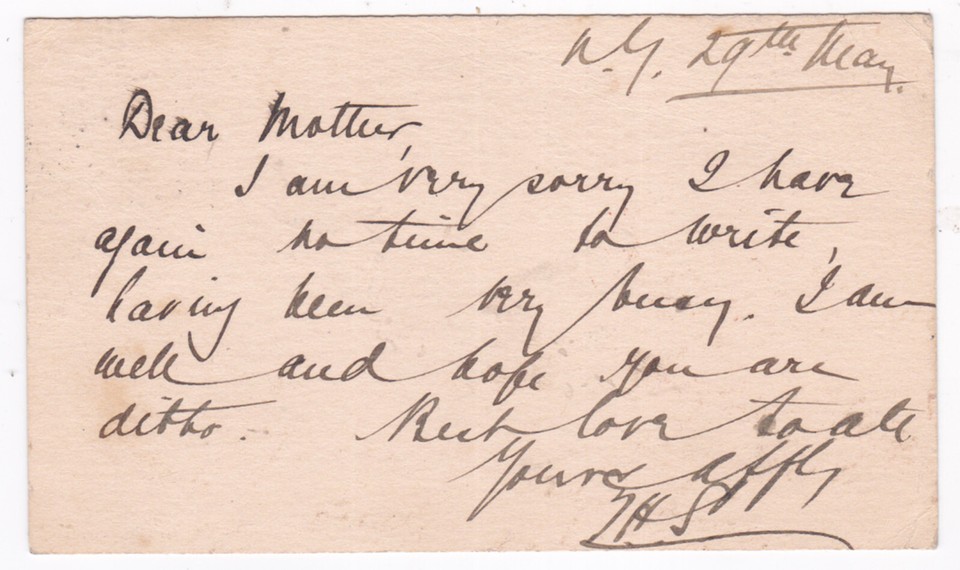 N.Y. 29th May.
Dear Mother,
I am very sorry I have
again no time to write,
having been very busy. I am
well and hope you are
ditto. Best love to all
Yours affly
HS